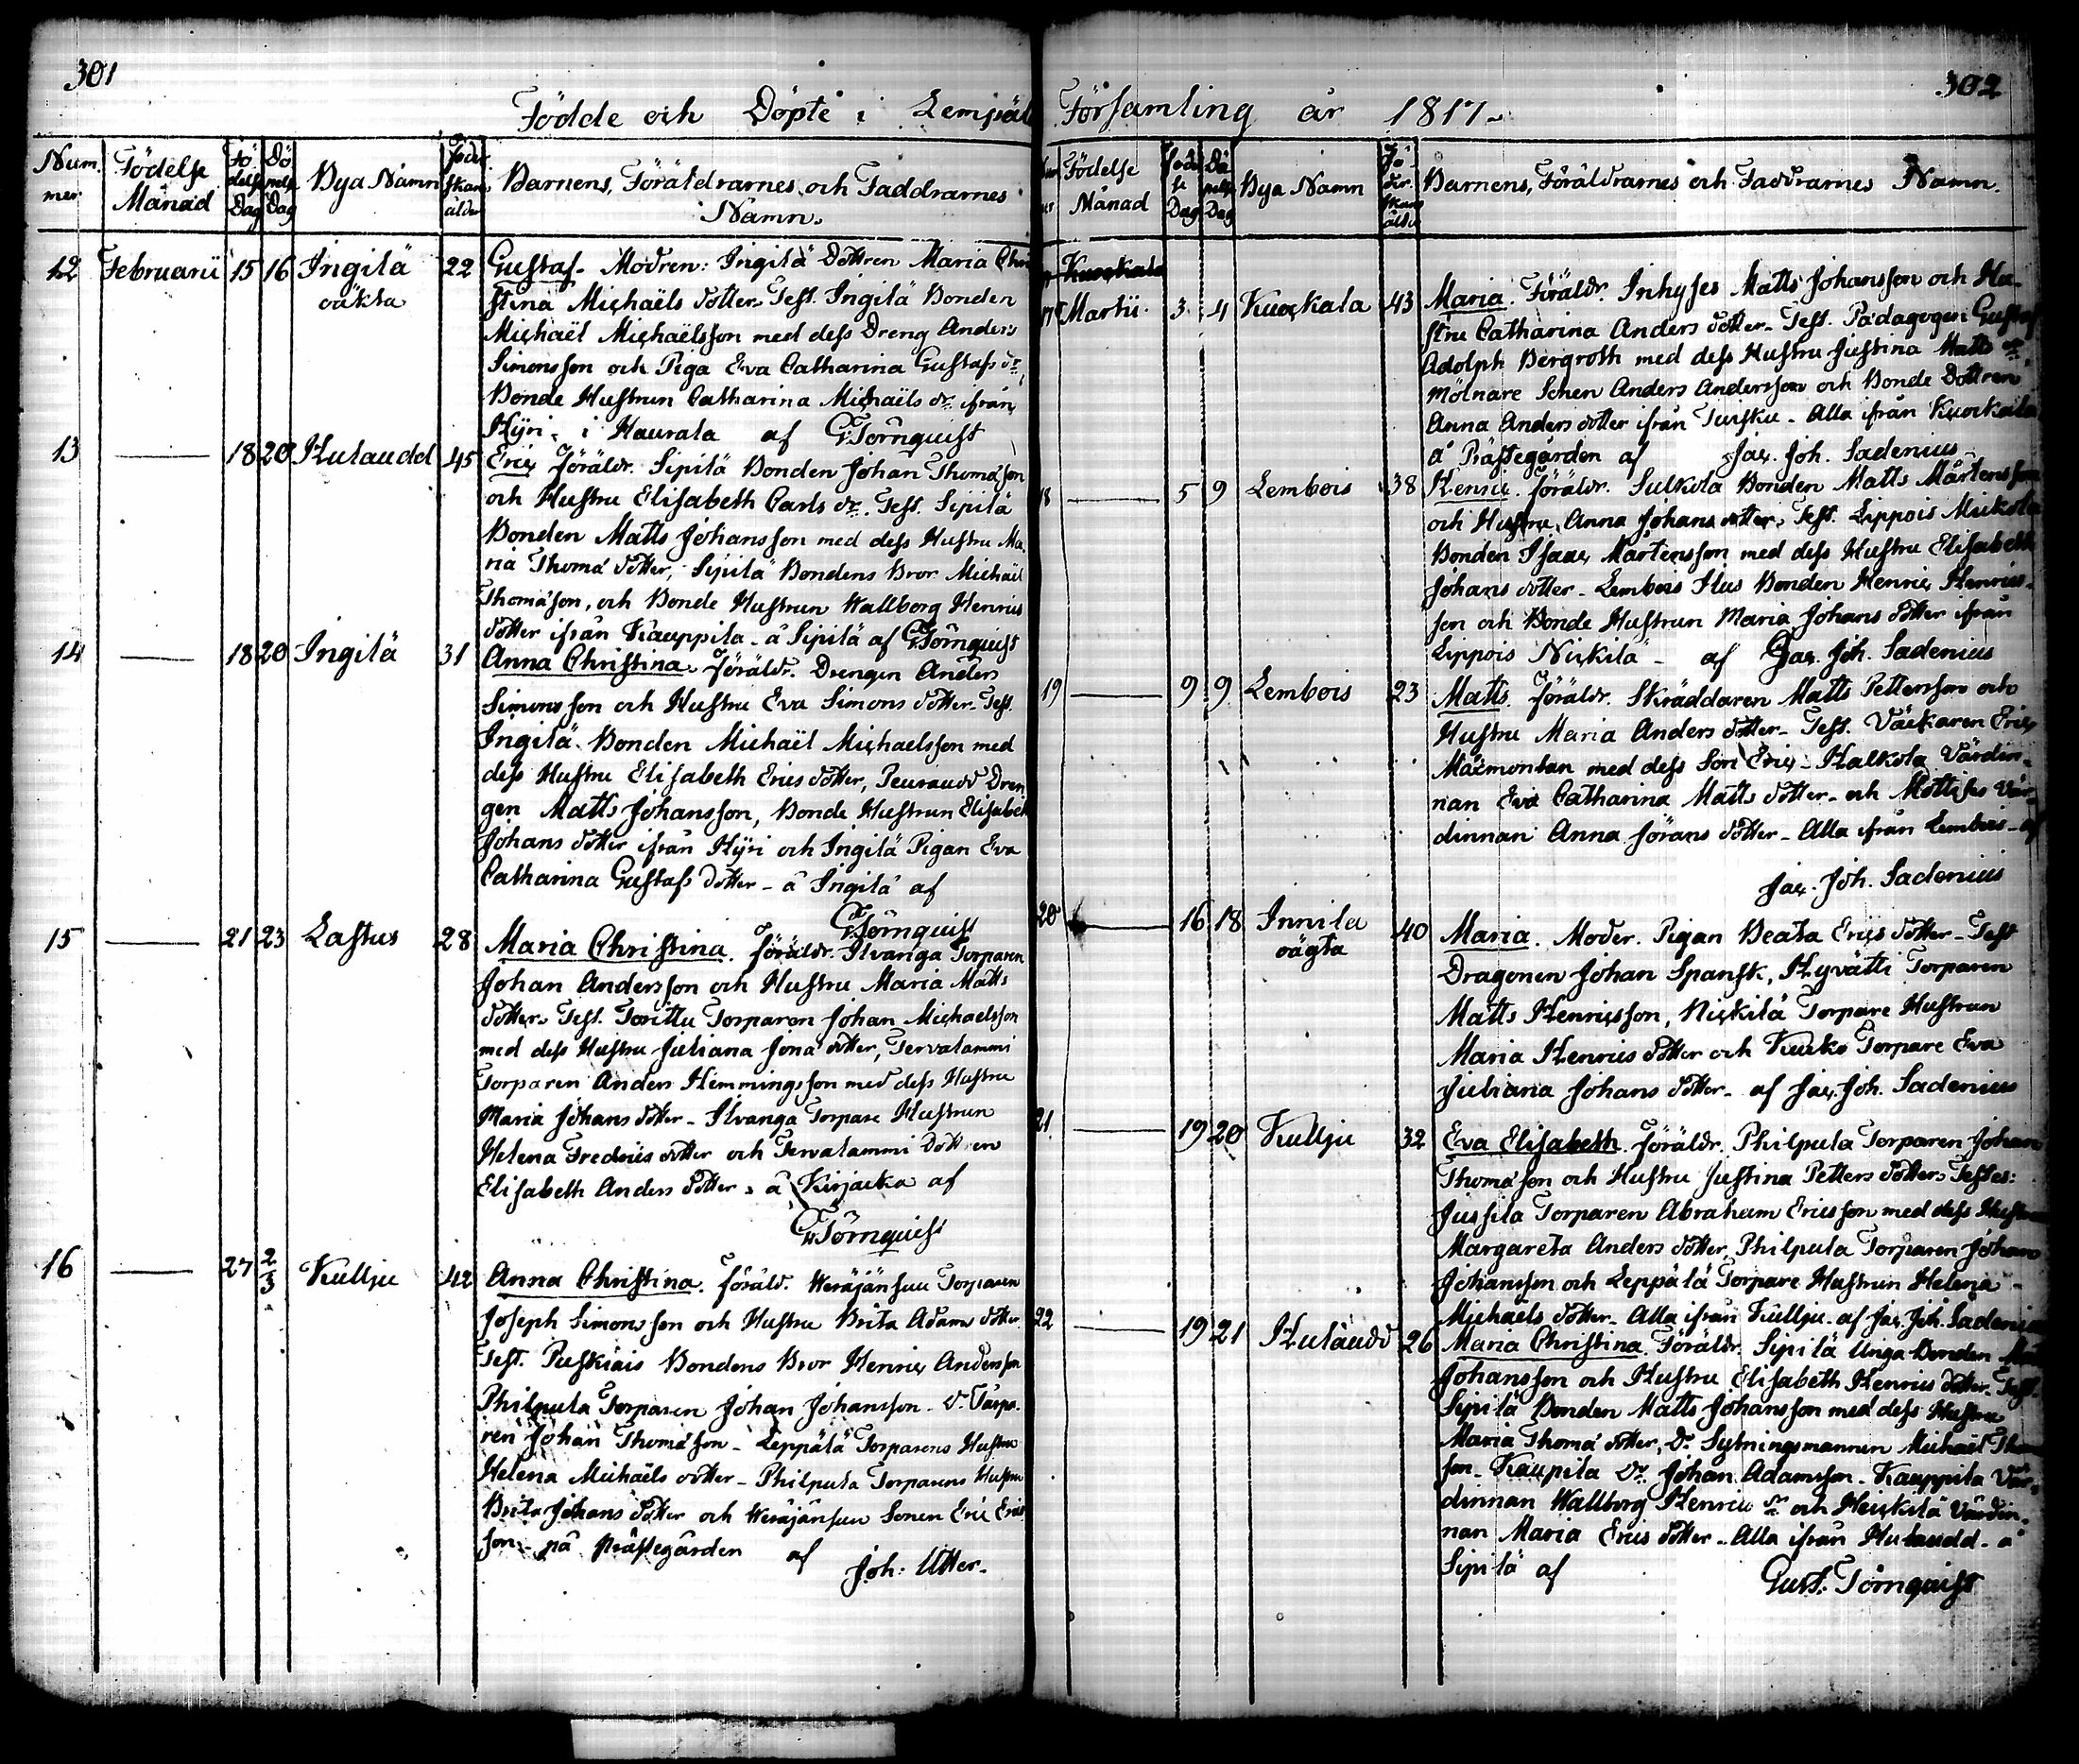 301
Födde och Döpte i Lempäl
Num.
mer
Födelse
Månad
Fö
delse
Dag
Dö
pelse
Dag
Bya Namn
Föder
skans
ålder
Barnens, Föräldrarnes och Faddrarnes
Namn.
12 Februarii 15 16 Ingilä 22 Gustaf. Modren: Ingilä Dottren Maria Chri
oäkta stina Michaëls dotter. Test. Ingilä Bonden
Michaël Michaëlsson med dess Dreng Anders
Simonsson och Piga Eva Catharina Gustafs dr.
Bonde Hustrun Catharina Michaëls dr. ifrån
Hyri. i Haurala af Törnquist
13 18 20 Hulaudd 45 Eric föräldr. Sipilä Bonden Johan Thomasson
och Hustru Elisabeth Carls dr. Test. Sipilä
Bonden Matts Johansson med dess Hustru Ma
ria Thomæ dotter, Sipilä Bondens Bror Michaël
Thomasson, och Bonde Hustrun Wallborg Henrics
dotter ifrån Kauppila - å Sipilä af Törnquist
14 18 20 Ingilä 31 Anna Christina. föräldr. Drengen Anders
Simonsson och Hustru Eva Simons dotter. Test.
Ingilä Bonden Michaël Michaelsson med
dess Hustru Elisabeth Erics dotter, Peuraudd Dren
gen Matts Johansson, Bonde Hustrun Elisabeth
Johans dotter ifrån Hyri och Ingilä Pigan Eva
Catharina Gustafs dotter - å Ingilä af
Törnquist
15 21 23 Lastus 28 Maria Christina. föräldr. Ilvanga Torparen
Johan Andersson och Hustru Maria Matts
dotter. Test. Torittu Torparen Johan Michaelsson
med dess Hustru Juliana Jonæ dotter, Tervalammi
Torparen Anders Hemmingsson med dess Hustru
Maria Johans dotter - Ilvanga Torpare Hustrun
Helena Fredrics dotter och Tervalammi Dottren
Elisabeth Anders dotter. å Kirjarka af
Törnquist
16 27 2/3 Kullju 42 Anna Christina. föräld. Heräjänsuu Torparen
Joseph Simonsson och Hustru Brita Adams dotter
Test. Puskiais Bondens Bror Henric Andersson
Philpula Torparen Johan Johansson - dr. Torpa
ren Johan Thomasson - Leppälä Torparens Hustru
Helena Michaëls dotter - Philpula Torparens Hustru
Brita Johans dotter och Heräjänsuu Sonen Eric Erics
son - på Prästegården af
Joh: Utter.
302
Församling år 1817.
Födelse
Månad
Föde
se
Dag
Dö
pelse
Dag
Bya Namn
Fö
der
skans
ålder
Barnens, Föräldrarnes och Faddrarnes Namn.
Kuockala
17 Martii 3. 4 Kuockala 43 Maria. Föräldr. Inhyses Matts Johansson och Hu
stru Catharina Anders dotter. Test. Pædagogen Gustaf
Adolph Bergroth med dess Hustru Justina Matts dr.
Mölnare Sonen Anders Andersson och Bonde Dottren
Anna Anders dotter ifrån Tursku. Alla ifrån Kuockala
å Prästegården af Jac. Joh. Sadenius
18 5 9 Lembois 38 Henric. föräldr. Sulkola Bonden Matts Mårtensson
och Hustru Anna Johans dotter. Test. Lippois Mickola
Bonden Isaac Mårtensson med dess Hustru Elisabeth
Johans dotter - Lembois Hus Bonden Henric Henrics
son och Bonde Hustrun Maria Johans dotter ifrån
Lippois Nickilä - af Jac. Joh. Sadenius
19 9 9 Lembois 23 Matts. föräldr. Skräddaren Matts Pettersson och
Hustru Maria Anders dotter - Test. Väckaren Eric
med dess Son Eric - Halkola Värdin
nan Eva Catharina Matts dotter - och Mattises Vär
dinnan Anna Jörans dotter - Alla ifrån Lembois - af
Jac. Joh. Sadenius
20 16 18 Innila 40 Maria. Moder. Pigan Beata Erics dotter - Test
oägta Dragonen Johan Spansk, Hyvätti Torparen
Matts Henricsson, Nickilä Torpare Hustrun
Maria Henrics dotter och Kurko Torpare Eva
Juliana Johans dotter - af Jac. Joh. Sadenius
21 19 20 Kullju 32 Eva Elisabeth. föräldr. Philpula Torparen Johan
Thomasson och Hustru Justina Petters dotter. Testes:
Jussila Torparen Abraham Ericsson med dess Hustru
Margareta Anders dotter, Philpula Torparen Johan
Johansson och Leppälä Torpare Hustrun Helena
Michaëls dotter. Alla ifrån Kullju. af Jac. Joh. Sadenius
22 19 21 Hulaudd 26 Maria Christina. Föräldr. Sipilä Unga Bonden
Johansson och Hustru Elisabeth Henrics dotter. Test.
Sipilä Bonden Matts Johansson med dess Hustru
Maria Thomæ dotter, dr. Sytningsmannen Michaël Thoma
son - Kaupila dr. Johan Adamsson - Kauppila Vär
dinnan Wallborg Henrics dr. och Heickilä Värdin
nan Maria Erics dotter - Alla ifrån Hulaudd - å
Sipilä af Gust. Törnquist